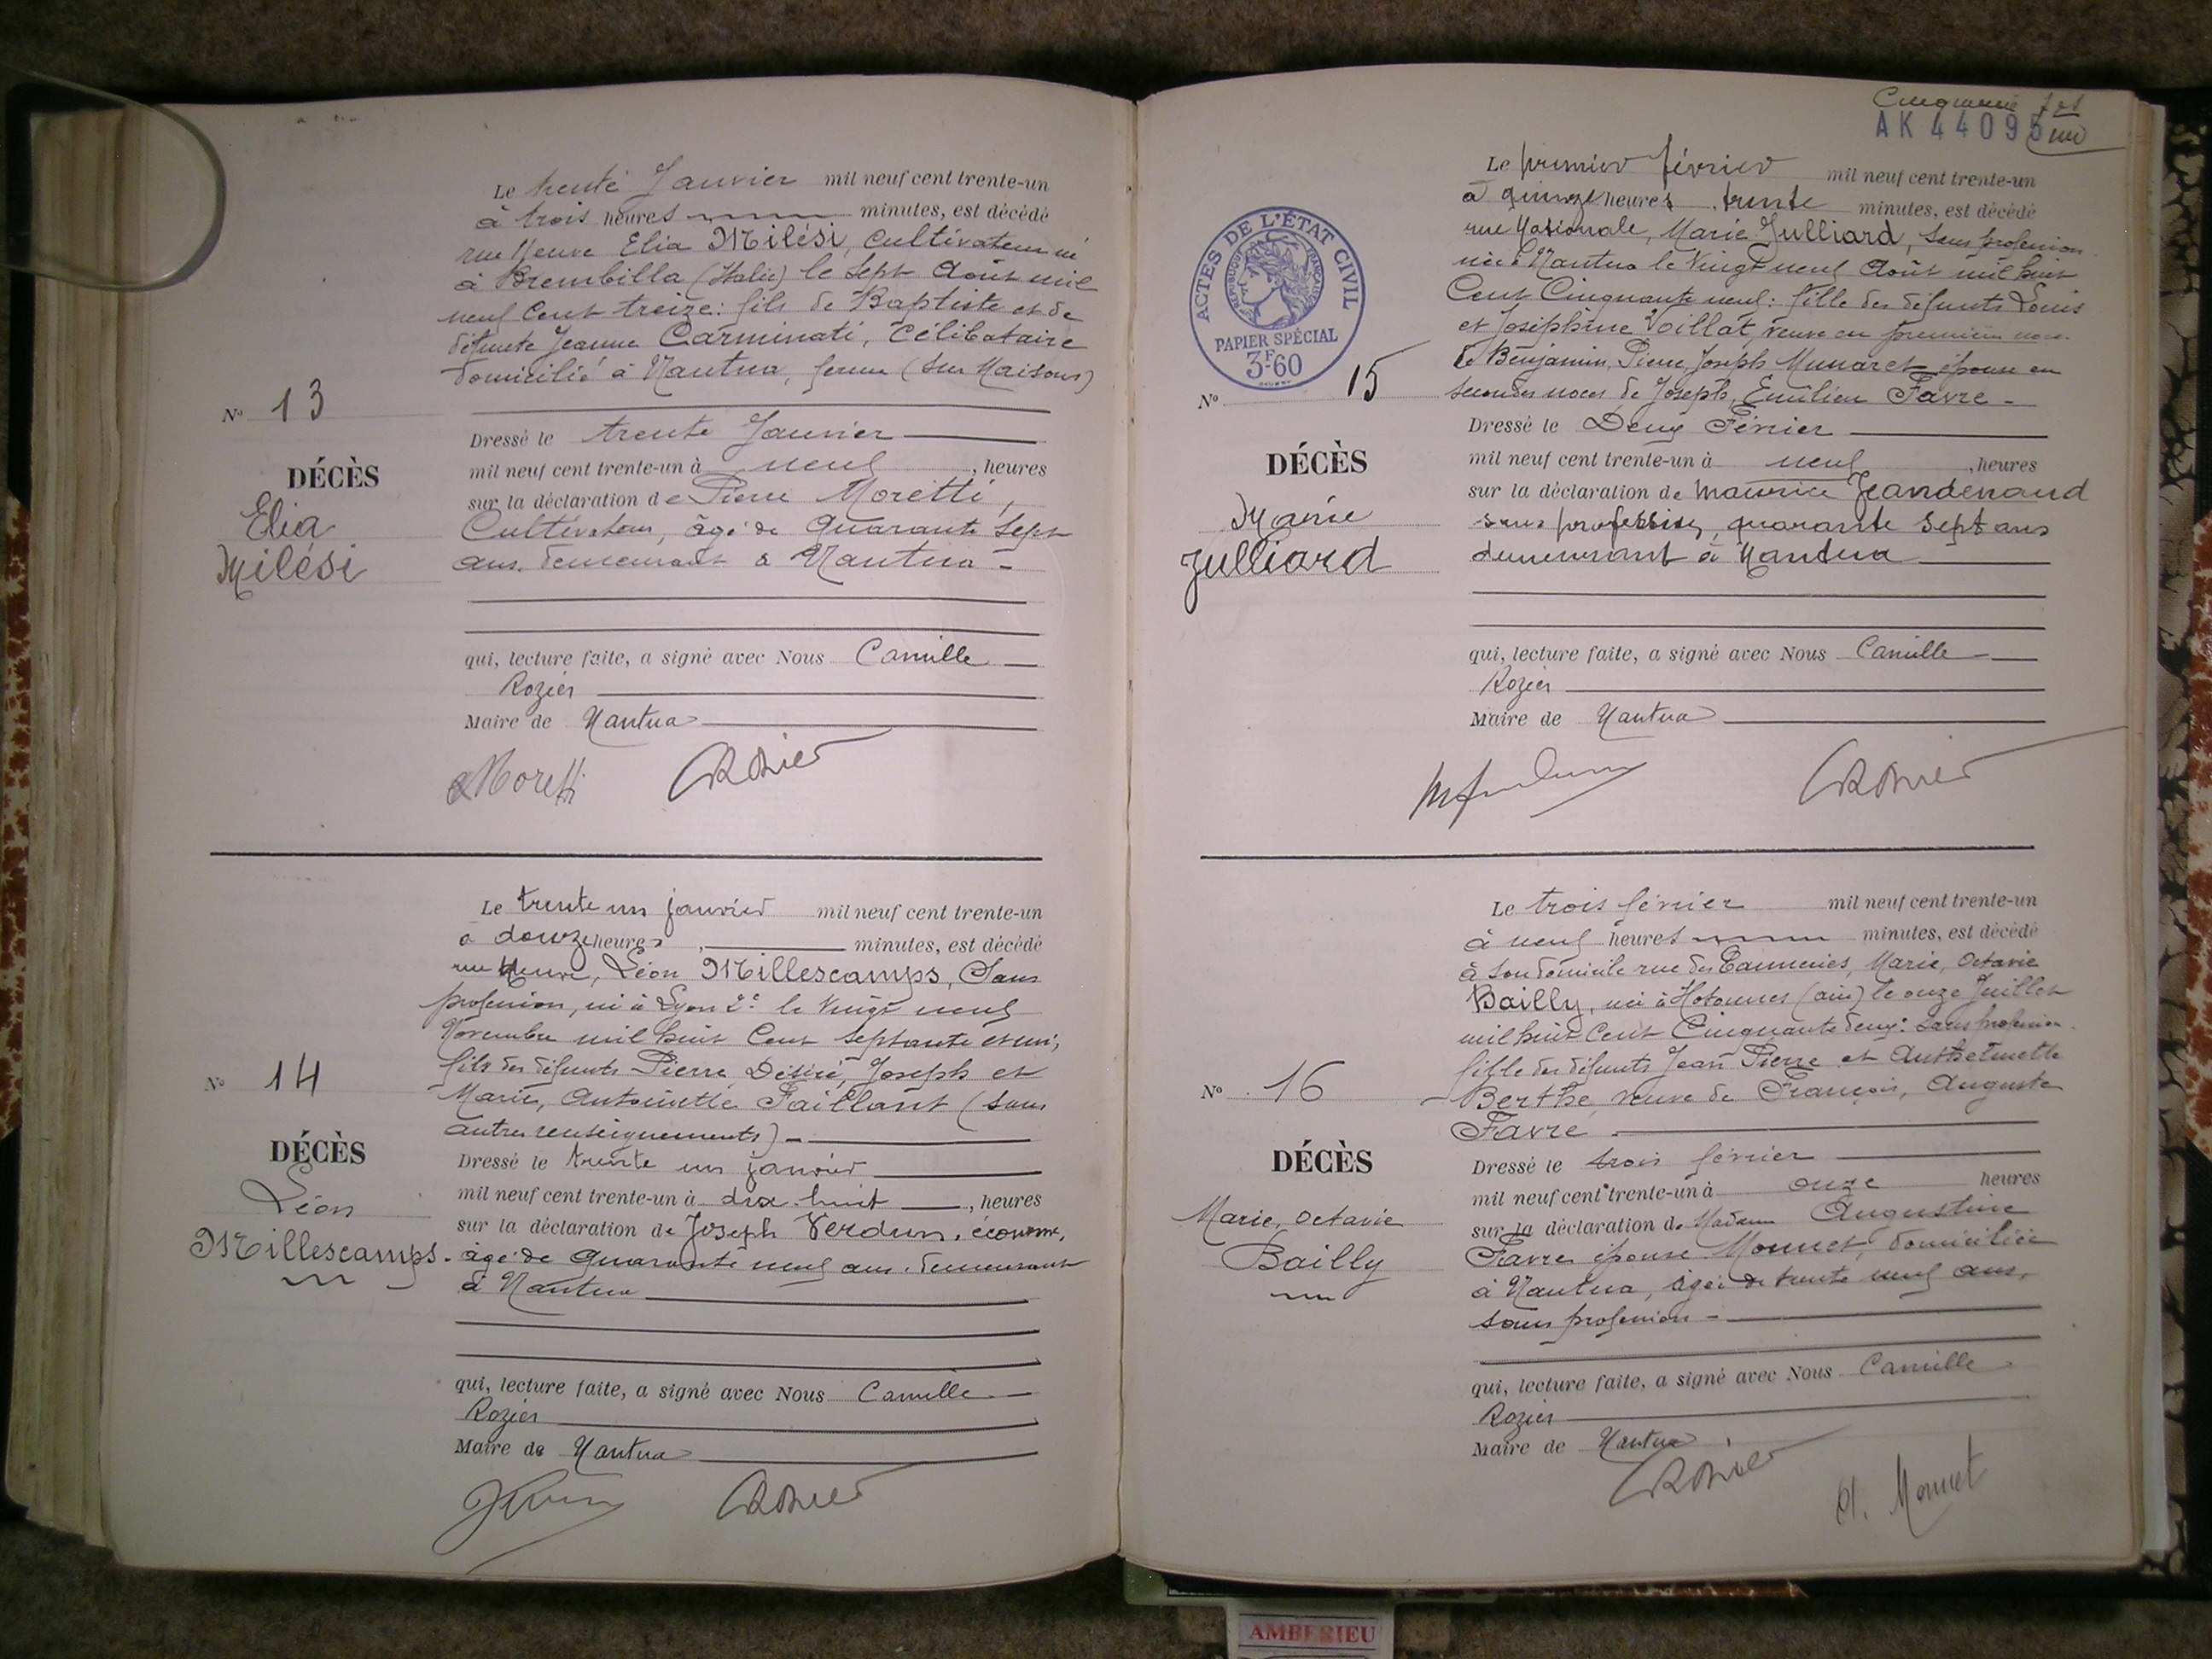 Le trente Janvier mil neuf cent trente-un
à trois heures minutes, est décédé
rue Neuve Elia Milési, Cultivateur né
à Brembilla (Italie) le Sept Août mil
neuf Cent treize: fils de Baptiste et de
défunte Jeanne Carminati, Célibataire
domicilié à Nantua, ferme (sur Maisons)
N° 13
DÉCÈS
Elia
Milési
Dressé le trente Janvier
mil neuf cent trente-un à neuf, heures
sur la déclaration de Pierre Moretti,
Cultivateur, âgé de quarante Sept
ans, demeurant à Nantua -
qui, lecture faite, a signé avec Nous Camille
Rozier
Maire de Nantua
Moretti Rozier
Le trente un janvier mil neuf cent trente-un
à douze heures, minutes, est décédé
rue Neuve, Léon Millescamps, Sans
profession, né à Lyon 2e le Vingt neuf
Novembre mil huit Cent Septante et un,
fils des défunts Pierre, Désiré, Joseph et
Marie, Antoinette Faillant (sans
autres renseignements) -
N° 14
DÉCÈS
Léon
Millescamps.
Dressé le trente un janvier
mil neuf cent trente-un à dix huit, heures
sur la déclaration de Joseph Verdun, économe,
âgé de quarante neuf ans, demeurant
à Nantua
qui, lecture faite, a signé avec Nous Camille
Rozier
Maire de Nantua
Rozier
Cinquante
AK 44095
un
Le premier février mil neuf cent trente-un
à quinze heures trente minutes, est décédé
rue Nationale, Marie Julliard, Sans profession
née à Nantua le Vingt neuf Août mil huit
Cent Cinquante neuf: fille des défunts Louis
et Joséphine Voillat, veuve en premières noces
de Benjamin, Pierre, Joseph Munaret épouse en
secondes noces de Joseph, Emilien Favre -
ACTES DE L'ÉTAT CIVIL
RÉPUBLIQUE FRANÇAISE
PAPIER SPÉCIAL
3F60
N° 15
DÉCÈS
Marie
Julliard
Dressé le Deux Février
mil neuf cent trente-un à neuf, heures
sur la déclaration de Maurice Jeandenand
sans profession, quarante sept ans
demeurant à Nantua
qui, lecture faite, a signé avec Nous Camille
Rozier
Maire de Nantua
Rozier
Le trois février mil neuf cent trente-un
à neuf heures minutes, est décédé
à son domicile rue des Tanneries, Marie, Octavie
Bailly, née à Hotonnes (ain) le onze Juillet
mil huit Cent Cinquante deux: Sans profession.
fille des défunts Jean Pierre et Anthelmette
Berthe, veuve de François, Auguste
Favre
N° 16
DÉCÈS
Marie, Octavie
Bailly
Dressé le trois février
mil neuf cent trente-un à onze heures
sur la déclaration de Madame Augustine
Favre épouse Monnet, domiciliée
à Nantua, âgée de trente neuf ans,
sans profession -
qui, lecture faite, a signé avec Nous Camille
Rozier
Maire de Nantua
Rozier
A. Monnet
AMBERIEU